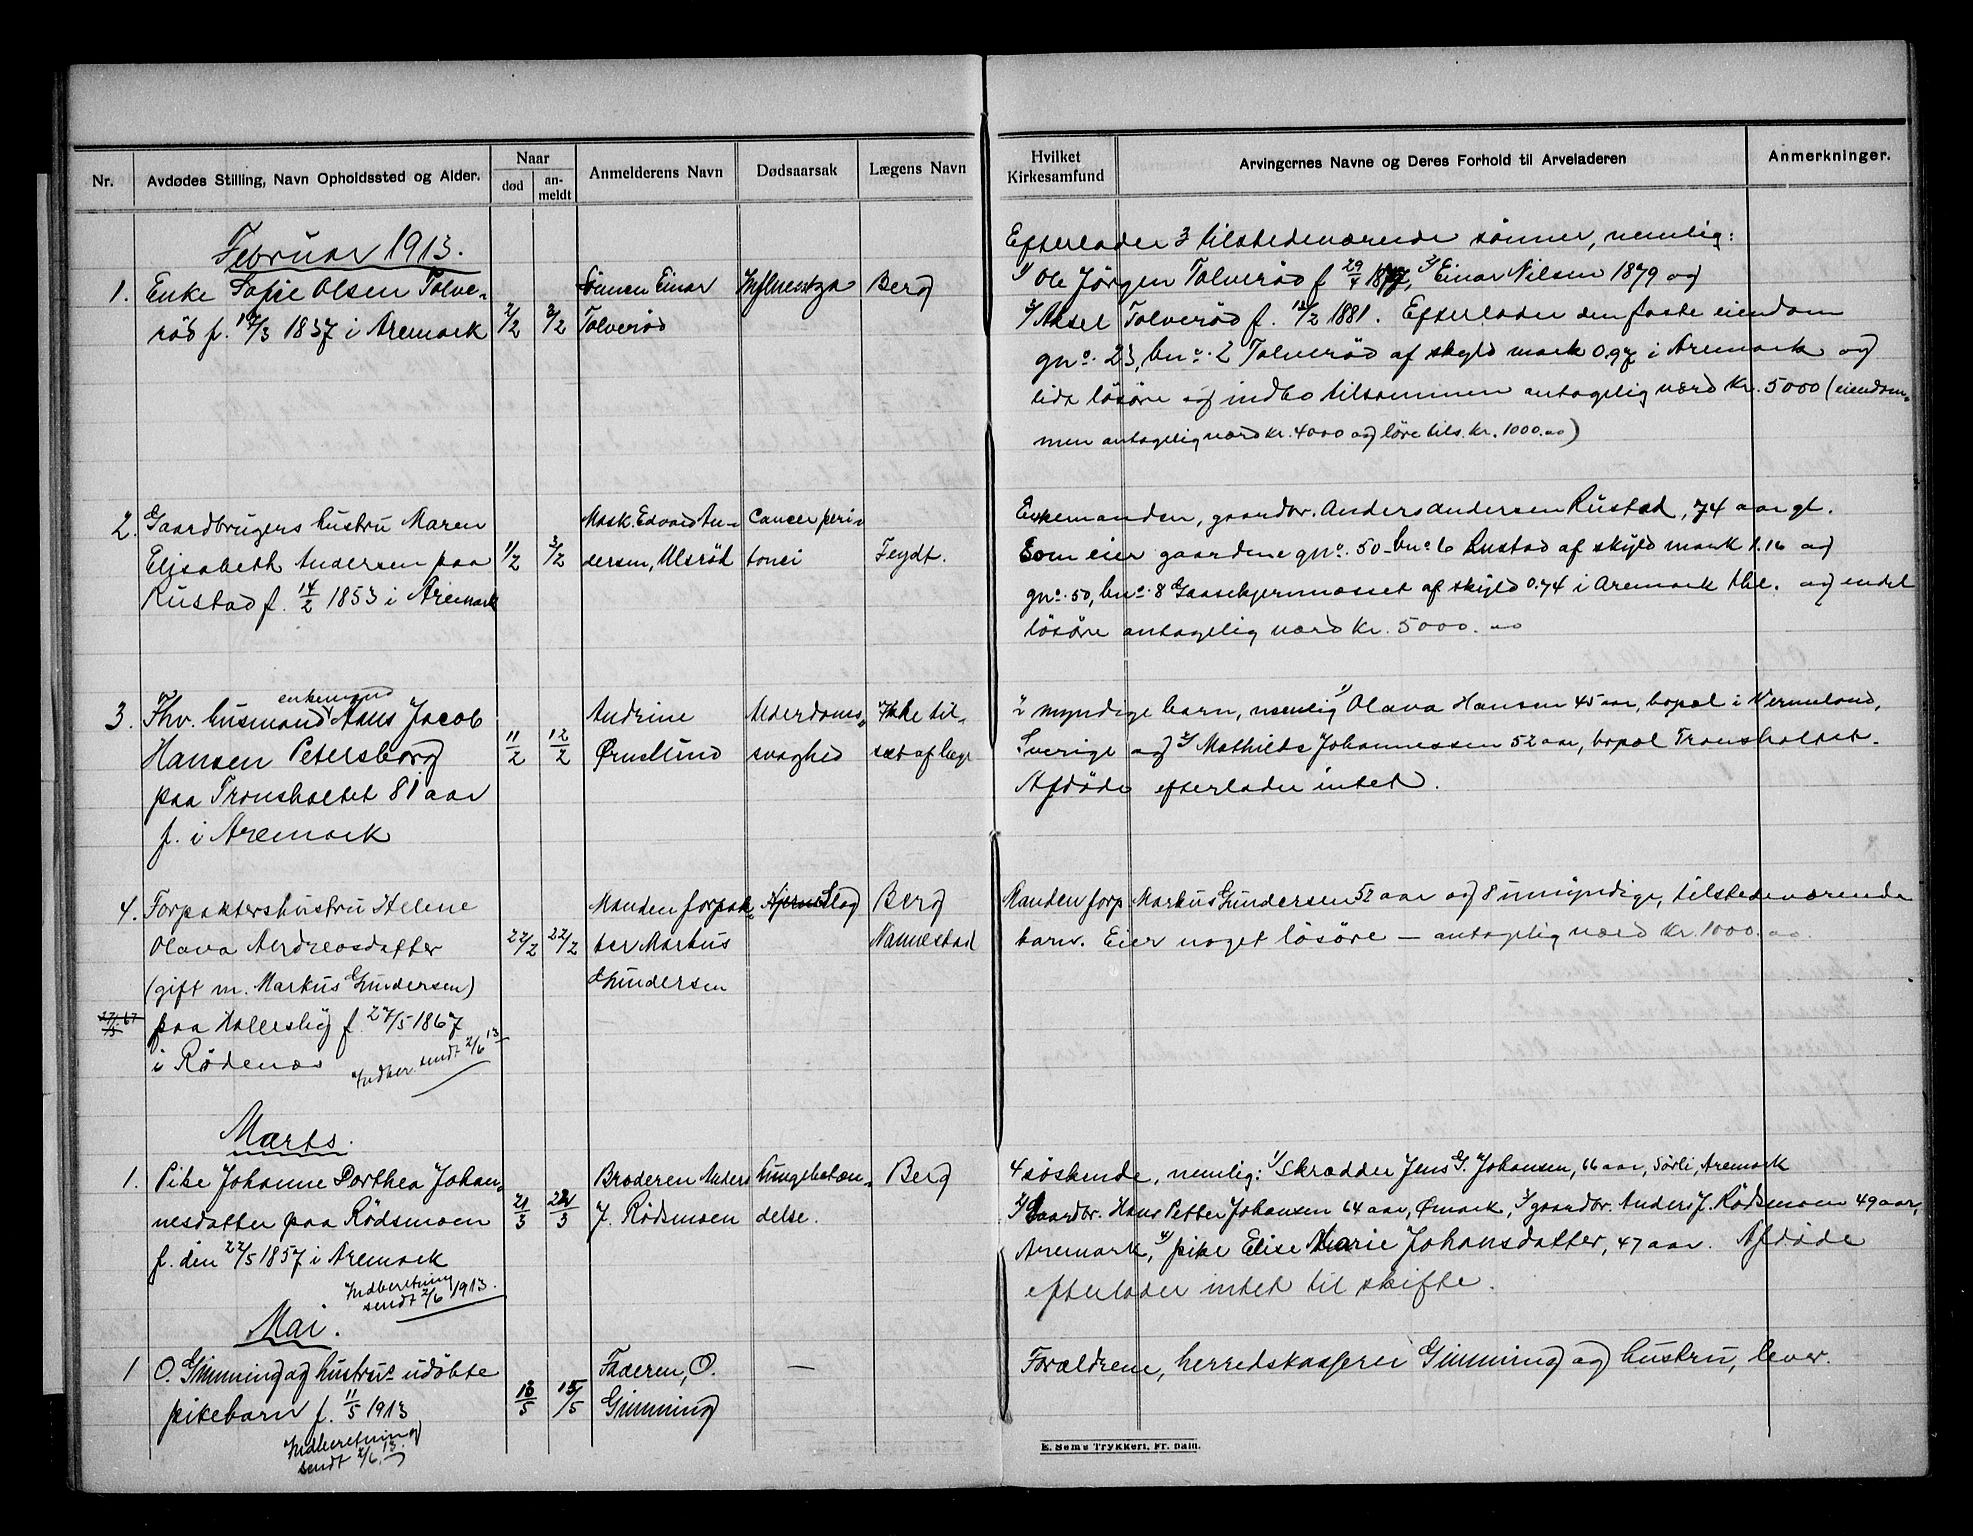 Nr.
Avdødes Stilling, Navn Opholdssted og Alder.
Naar
død
an-
meldt
Anmelderens Navn
Dødsaarsak
Lægens Navn
Hvilket
Kirkesamfund
Arvingernes Navne og Deres Forhold til Arveladeren
Anmerkninger.
Februar 1913.
1. Enke Sofie Olsen Tolve-
rød f. 1837 i Aremark
2/2
3/2
Sønnen Einar
Tolverød
Influentza
Berg
Efterlader 3 tilstedeværende sønner, nemlig:
1/ Ole Jørgen Tolverød f 29/4 1877, 2/ Einar Nilsen 1879 og
3/ Aksel Tolverød f. 12/2 1881. Efterlader den faste eiendom
gno. 23, bno. 2 Tolverød af skyld mark 0.97 i Aremark og
lidt løsøre og indbo tilsammen antagelig værd kr. 5000 (eiendom-
men antagelig værd kr. 4000 og løre tils. kr. 1000.00)
2. Gaardbrugers hustru Maren
Elisabeth Andersen paa
Rustad f. 14/2 1853 i Aremark
1/2
3/2
Mask. Edvard An-
dersen, Ulsrød
Cancer peri-
tonei
Feydt.
Enkemanden, gaardbr. Anders Andersen Rustad, 74 aar gl.
Som eier gaardene gno. 50 - bno 6 Rustad af skyld mark 1.16 og
gno. 50, bno. 8 Gaasekjernmosset af skyld 0.74 i Aremark thl. og endel
løsøre antagelig værd kr. 5000.00
3. Fhv. husmand enkemand Hans Jacob
Hansen Petersborg
paa Tronsholtet 81 aar
f. i Aremark
11/2
12/2
Andrine
Ørnslund
Alderdoms-
svaghed
Ikke til-
set af læge
2 myndige barn, nemlig 1/ Olava Hansen 45 aar, bopæl i Vermeland,
Sverige og 2/ Mathilde Johannessen 52 aar, bopæl Tronsholtet.
Afdøde efterlader intet.
4. Forpaktershustru Helene
Olava Andreasdatter
(gift m. Markus Gundersen)
paa Hallesby f. 27/5 1867
i Rødenæs
Indber. sendt 2/6 13
22/2
22/2
Manden forpak-
ter Markus
Gundersen
Hjerneslag
Berg
Namestad
Manden forp. Markus Gundersen 52 aar og 8 umyndige, tilstedeværende
barn. Eier noget løsøre - antagelig værd kr. 1000.00.
Marts.
1. Pike Johanne Dorthea Johan-
nesdatter paa Rødsmoen
f. den 22/5 1857 i Aremark
Indberetning
sendt 2/6 1913.
21/3
Broderen Anders
J. Rødsmoen
Lungebetæn-
delse.
Berg
4 søskende, nemlig: 1/ Skrædder Jens G. Johansen, 66 aar, Sørli, Aremark
2/ Gaardbr. Hans Petter Johansen 64 aar, Ømark, 3/ gaardbr. Anders J. Rødsmoen 49 aar,
Aremark, 4/ pike Elise Marie Johansdatter, 47 aar. Afdøde
efterlader intet til skifte.
Mai.
1 O. Gimming og hustrus udøbte
pikebarn f. 11/5 1913
Indberetning
sendt 2/6 13.
13/5
15/5
Faderen, O.
Gimming
—
Forældrene, herredskasserer Gimming og hustru, lever.
E. Sem's Trykkeri, Fr. hald.